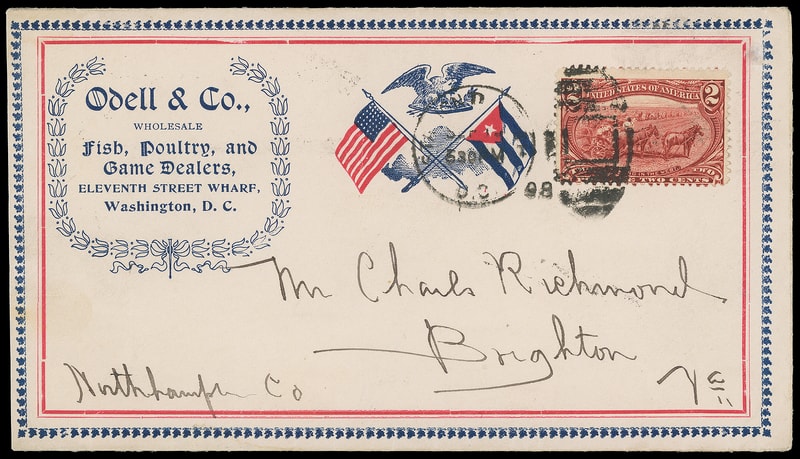 Odell & Co.,
WHOLESALE
Fish, Poultry, and
Game Dealers,
ELEVENTH STREET WHARF,
Washington, D. C.
530PM
D.C. 98
UNITED STATES OF AMERICA
2
TWO CENTS
Mr Charls Richmond
Brighton
Northhampton Co
Va